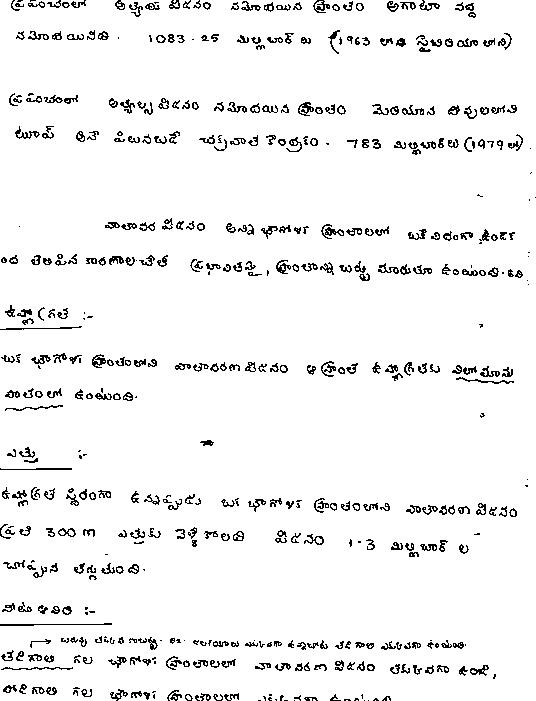 ప్రపంచంలో అత్యధిక పీడనం నమోదయిన ప్రాంతం అగాటా వద్ద
నమోదయినది. 1083.25 మిల్లీబార్ లు (1963 లో సైబీరియాలోని)
ప్రపంచంలో అత్యల్ప పీడనం నమోదయిన ప్రాంతం మెరియానా దీవులలోని
టైఫూన్ అనే పిలువబడే చక్రవాత కేంద్రకం. 783 మిల్లీబార్ లు (1979 లో)
వాతావరణ పీడనం అన్ని భౌగోళిక ప్రాంతాలలో ఒకే విధంగా ఉండక
తెలిపిన కారణాల చేత ప్రభావితమై, ప్రాంతాన్ని బట్టి మారుతూ ఉంటుంది.
ఉష్ణోగ్రత :-
ఒక భౌగోళిక ప్రాంతంలోని వాతావరణ పీడనం ఆ ప్రాంత ఉష్ణోగ్రతకు విలోమాను
పాతంలో ఉంటుంది.
ఎత్తు :-
ఉష్ణోగ్రత స్థిరంగా ఉన్నప్పుడు ఒక భౌగోళిక ప్రాంతంలోని వాతావరణ పీడనం
ప్రతి 300 m ఎత్తుకు వెళ్ళే కొలది పీడనం 1.3 మిల్లీబార్ ల
చొప్పున తగ్గుతుంది.
నీటి ఆవిరి :-
తడిగాలి గల భౌగోళిక ప్రాంతాలలో వాతావరణ పీడనం తక్కువగా ఉండి,
పొడిగాలి గల భౌగోళిక ప్రాంతాలలో ఎక్కువగా ఉంటుంది.